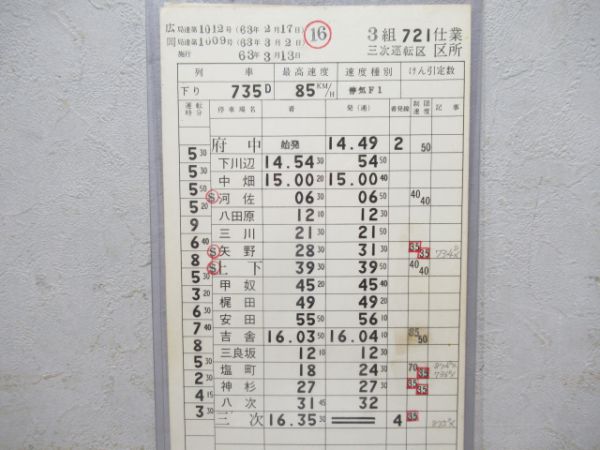 広局達第1012号(63年2月17日)
岡局達第1009号(63年3月2日)
施行 63年3月13日
16
3組 721仕業
三次運転区 区所
列車 最高速度 速度種別 けん引定数
下り 735D 85KM/H 停気F1
運転時分 停車場名 着 発(通) 着発線 制限速度 記事
府中 始発 14.49 2 50
5 30
下川辺 14.54 30 54 50
5 30
中畑 15.00 20 15.00 40
5 50
Ⓢ 河佐 06 30 06 50 40 40
5 20
八田原 12 10 12 30
9
三川 21 30 21 50
6 40
Ⓢ 矢野 28 30 31 30 35 35 734D
8
Ⓢ 上下 39 30 39 50 40 40
5 30
甲奴 45 20 45 40
3 20
梶田 49 49 20
6 30
安田 55 50 56 10
7 40
吉舎 16.03 50 16.04 10 85 50
8
三良坂 12 10 12 30
5 30
塩町 18 24 30 70 35
2 30
神杉 27 27 30 35 35
4 15
八次 31 45 32
3 30
三次 16.35 30 4 35